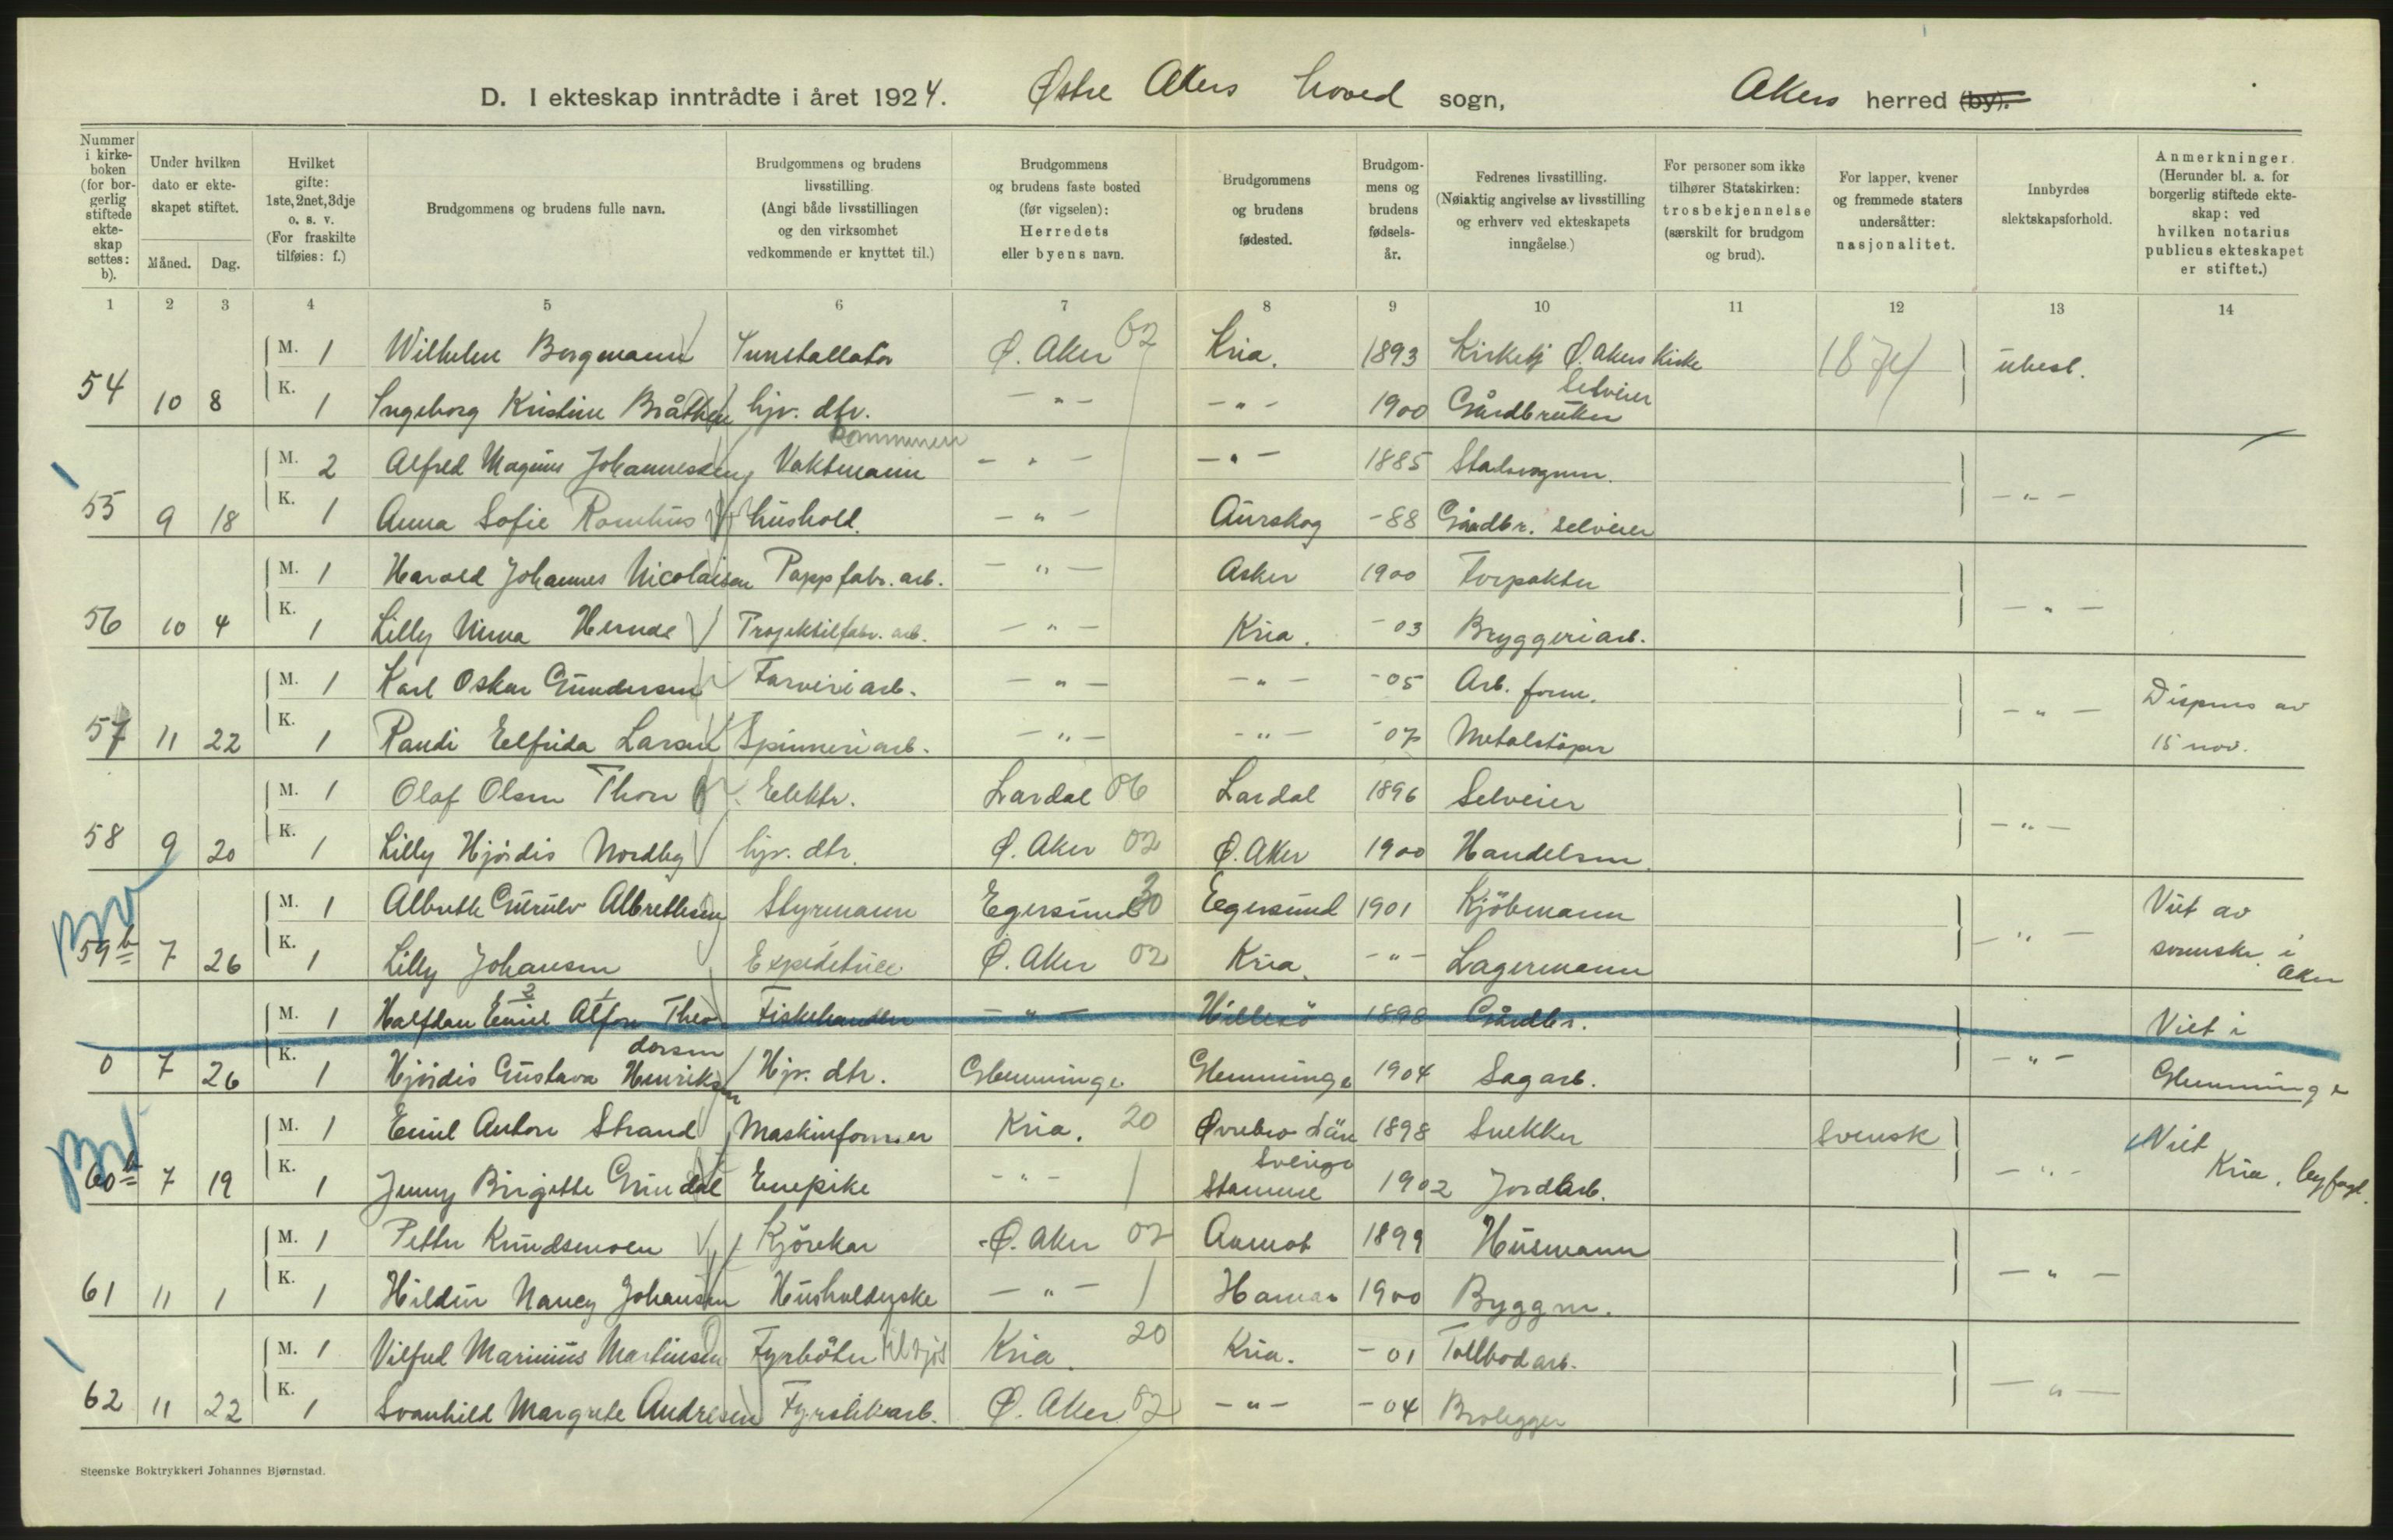 D. I ekteskap inntrådte i året 1924. Østre Akers hoved sogn, Akers herred (by).
Nummer i kirkeboken (for borgerlig stiftede ekteskap settes: b).
Under hvilken dato er ekteskapet stiftet.
Måned. Dag.
Hvilket gifte: 1ste, 2net, 3dje o. s. v. (For fraskilte tilføies: f.)
Brudgommens og brudens fulle navn.
Brudgommens og brudens livsstilling. (Angi både livsstillingen og den virksomhet vedkommende er knyttet til.)
Brudgommens og brudens faste bosted (før vigselen): Herredets eller byens navn.
Brudgommens og brudens fødested.
Brudgommens og brudens fødselsår.
Fedrenes livsstilling. (Nøiaktig angivelse av livsstilling og erhverv ved ekteskapets inngåelse.)
For personer som ikke tilhører Statskirken: trosbekjennelse (særskilt for brudgom og brud).
For lapper, kvener og fremmede staters undersåtter: nasjonalitet.
Innbyrdes slektskapsforhold.
Anmerkninger. (Herunder bl. a. for borgerlig stiftede ekteskap: ved hvilken notarius publicus ekteskapet er stiftet.)
1 2 3 4 5 6 7 8 9 10 11 12 13 14
M. 1 Wilhelm Bergmann Installatør Ø. Aker 02 Kria. 1893 Kirketj Ø. Akers Kirke 1874 ubesl.
54 10 8 K. 1 Ingeborg Kristine Bråthen hjv. dtr. - " - - " - 1900 Gårdbruker Selveier
M. 2 Alfred Magnus Johannessen Vaktmann kommunen - " - - " - 1885
55 9 18 K. 1 Anna Sofie Romhus hushold. - " - Aurskog - 88 Gårdbr. selveier - " -
M. 1 Harald Johannes Nicolaisen Pappfabr. arb. - " - Asker 1900 Forpakter
56 10 4 K. 1 Lilly Hernde Projektilfabr. arb. - " - Kria. - 03 Bryggeriarb. - " -
M. 1 Karl Oskar Gundersen Farveriarb. - " - - " - - 05 Arb. form. Dispens av
57 11 22 K. 1 Randi Elfrida Larsen Spinneriarb. - " - - " - - 07 Metalstøper - " - 15 nov.
M. 1 Olaf Olsen Thon Elektr. Lardal 06 Lardal 1896 Selveier
58 9 20 K. 1 Lilly Hjørdis Nordby hjv. dtr. Ø. Aker 02 Ø. Aker 1900 Handelsm. - " -
M. 1 Albreth Albrethsen Styrmann Egersund 30 Egersund 1901 Kjøbmann Viet av
59 b 7 26 K. 1 Lilly Johansen Expeditrice Ø. Aker 02 Kria. - " - Lagermann - " - i Aker
M. 1 Halfdan Emil Alfon Theo- Fiskehandler - " - Hillesö 1898 Gårdbr. Viet i
0 7 26 K. 1 dorsen Hjørdis Gustava Henriksen Hjv. dtr. Glemminge Glemminge 1904 Sagarb. - " - Glemminge
M. 1 Emil Anton Strand Maskinformer Kria. 20 Ørrebro Län Sverige 1898 Snekker Svensk Viet
60 b 7 19 K. 1 Jenny Birgitte Grindal Enepike - " - Stamme 1902 Jordarb. - " - Kria. byfogd.
M. 1 Petter Knudsmoen Kjörekar Ø. Aker 02 Aamot 1899 Husmann
61 11 1 K. 1 Hildur Nancy Johansen Husholderske - " - Hamar 1900 Byggm. - " -
M. 1 Vilfred Marinius Martinsen Fyrbøter til sjøs Kria. 20 Kria. - 01 Tollbodarb.
62 11 22 K. 1 Svanhild Margrete Andresen Fyrstikarb. Ø. Aker 02 - " - - 04 Brolegger - " -
Steenske Boktrykkeri Johannes Bjørnstad.